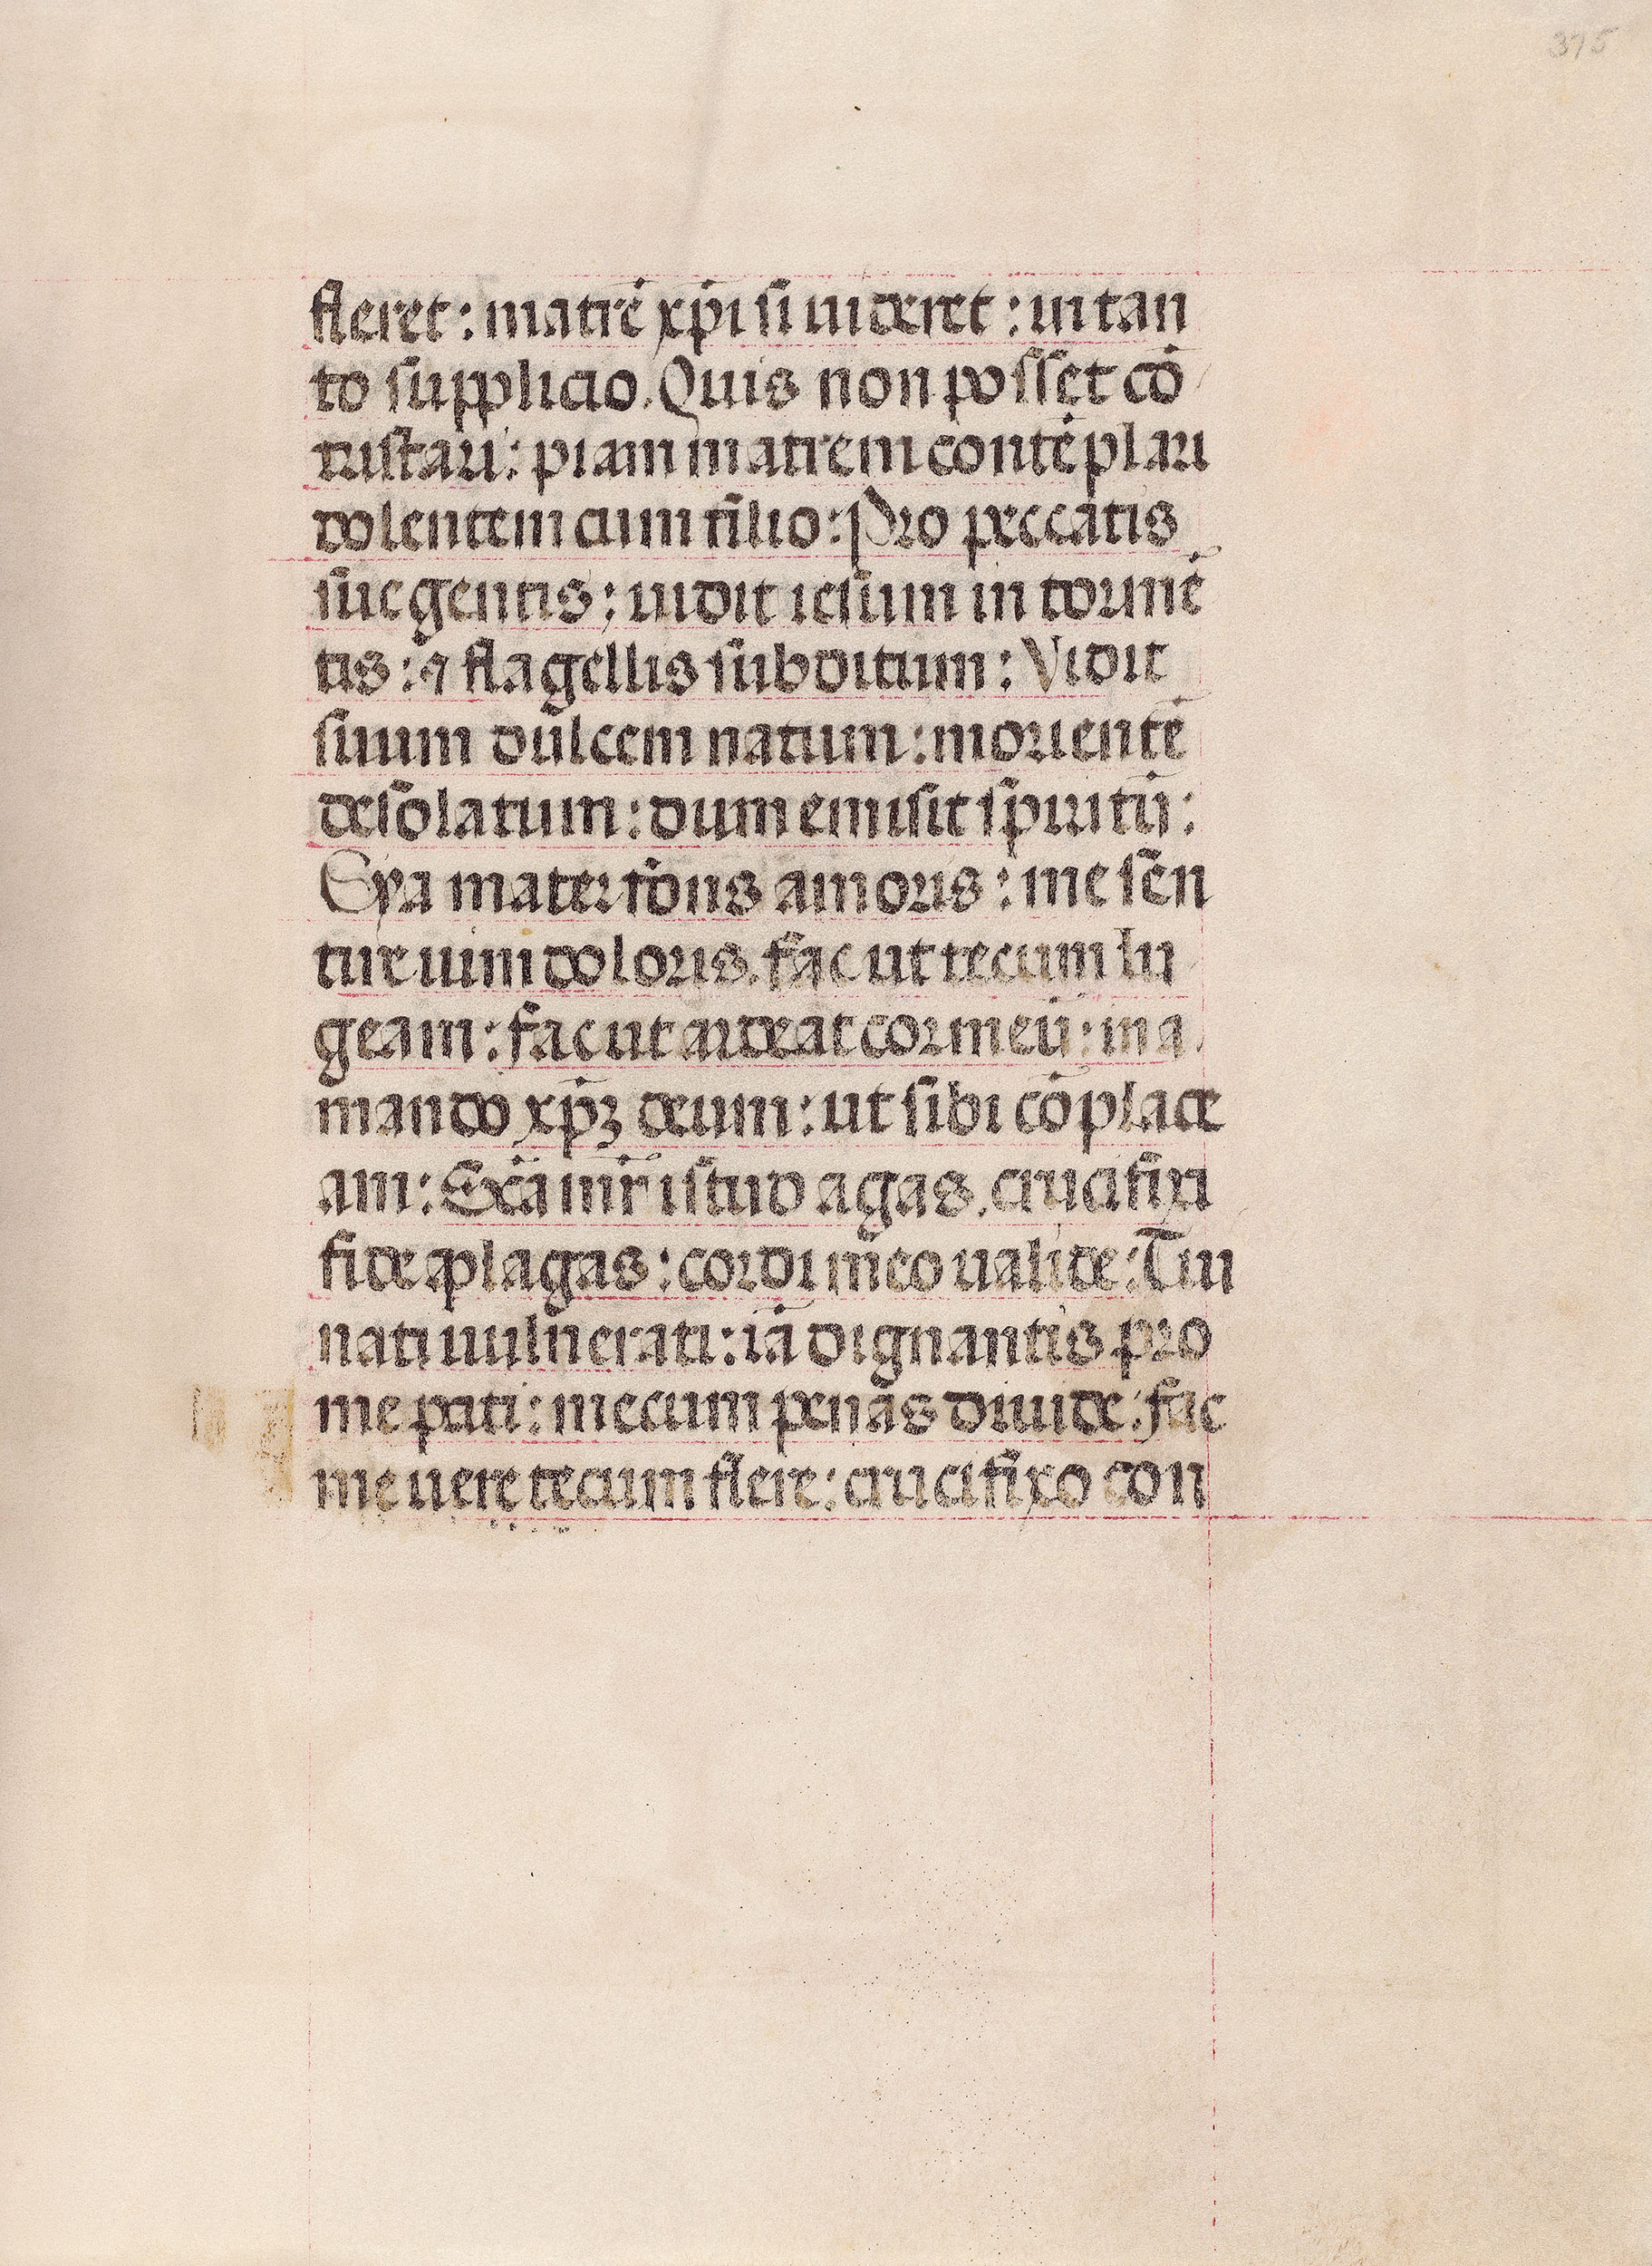 375
fleret: matrē xp̄i si uideret: in tan
to supplicio. Quis non posset cō
tristari: piam matrem contēplari
dolentem cum filio: Pro peccatis
sue gentis: uidit iesum in tormē
tis: ⁊ flagellis subditum: Vidit
suum dulcem natum: morientē
desolatum: dum emisit spiritū:
Eya mater fons amoris: me sen
tire uim doloris. fac ut tecum lu
geam: fac ut ardeat cor meū: in a
mando xp̄ꝫ deum: ut sibi cōplace
am: Scā mr̄ istud agas. crucifixi
fide plagas: cordi meo ualide: Tui
nati uulnerati: iā dignantis pro
me pati: mecum penas diuide. fac
me uere tecum flere: crucifixo con